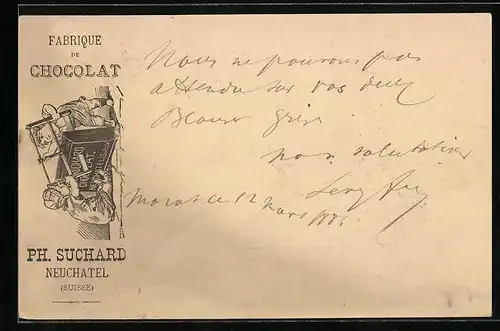 FABRIQUE
DE
CHOCOLAT
PH. SUCHARD
NEUCHATEL
(SUISSE)
Nous ne pouvons pas
attendre sur vos deux
Blouses grises
nos salutations
Morat ce 12 Mars